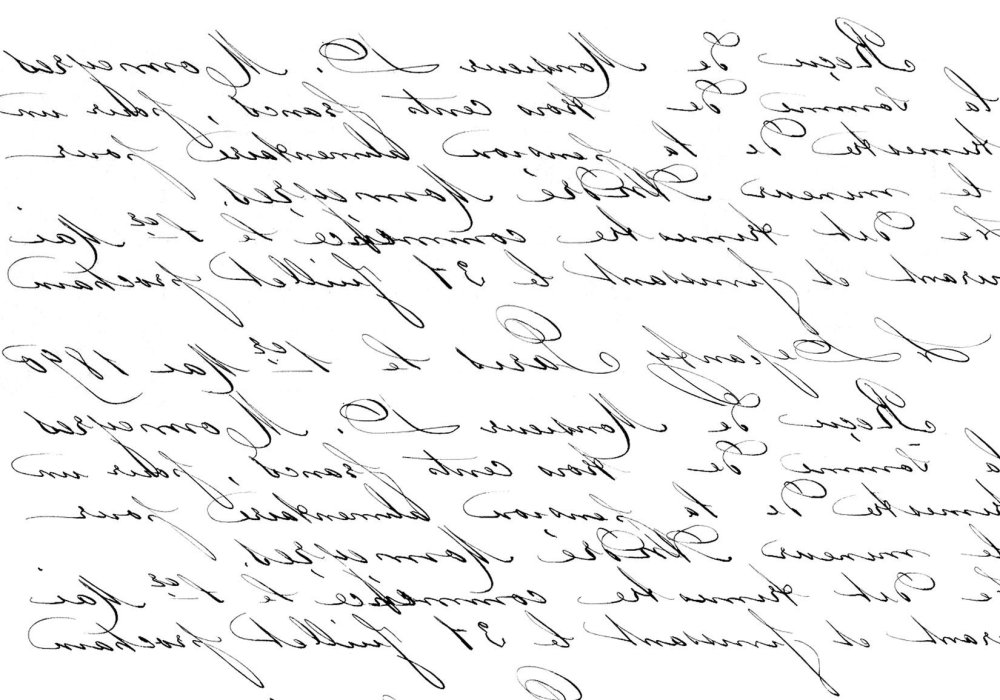 Reçu de Monsieur L. Momeyres
la somme de trois cents francs, pour un
trimestre de la pension alimentaire pour
le mineur André Momeyres.
Ce dit trimestre commence le 1er Mai
urant et finissant le 31 Juillet prochain
Paris le 1er Mai 1890
Reçu de Monsieur L. Momeyres
la somme de trois cents francs, pour un
trimestre de la pension alimentaire pour
le mineur André Momeyres.
Ce dit trimestre commence le 1er Mai
rant et finissant le 31 Juillet prochain